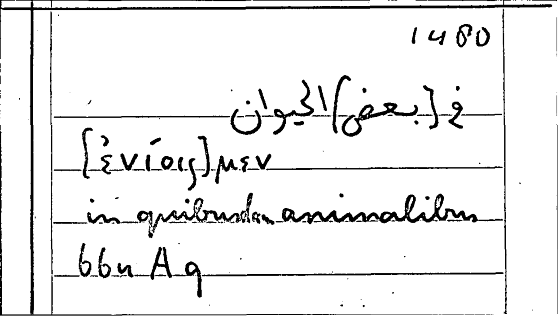 1480
في [بعض] الحيوان
[ἐνίοις] μεν
in quibusdam animalibus
66u A 9